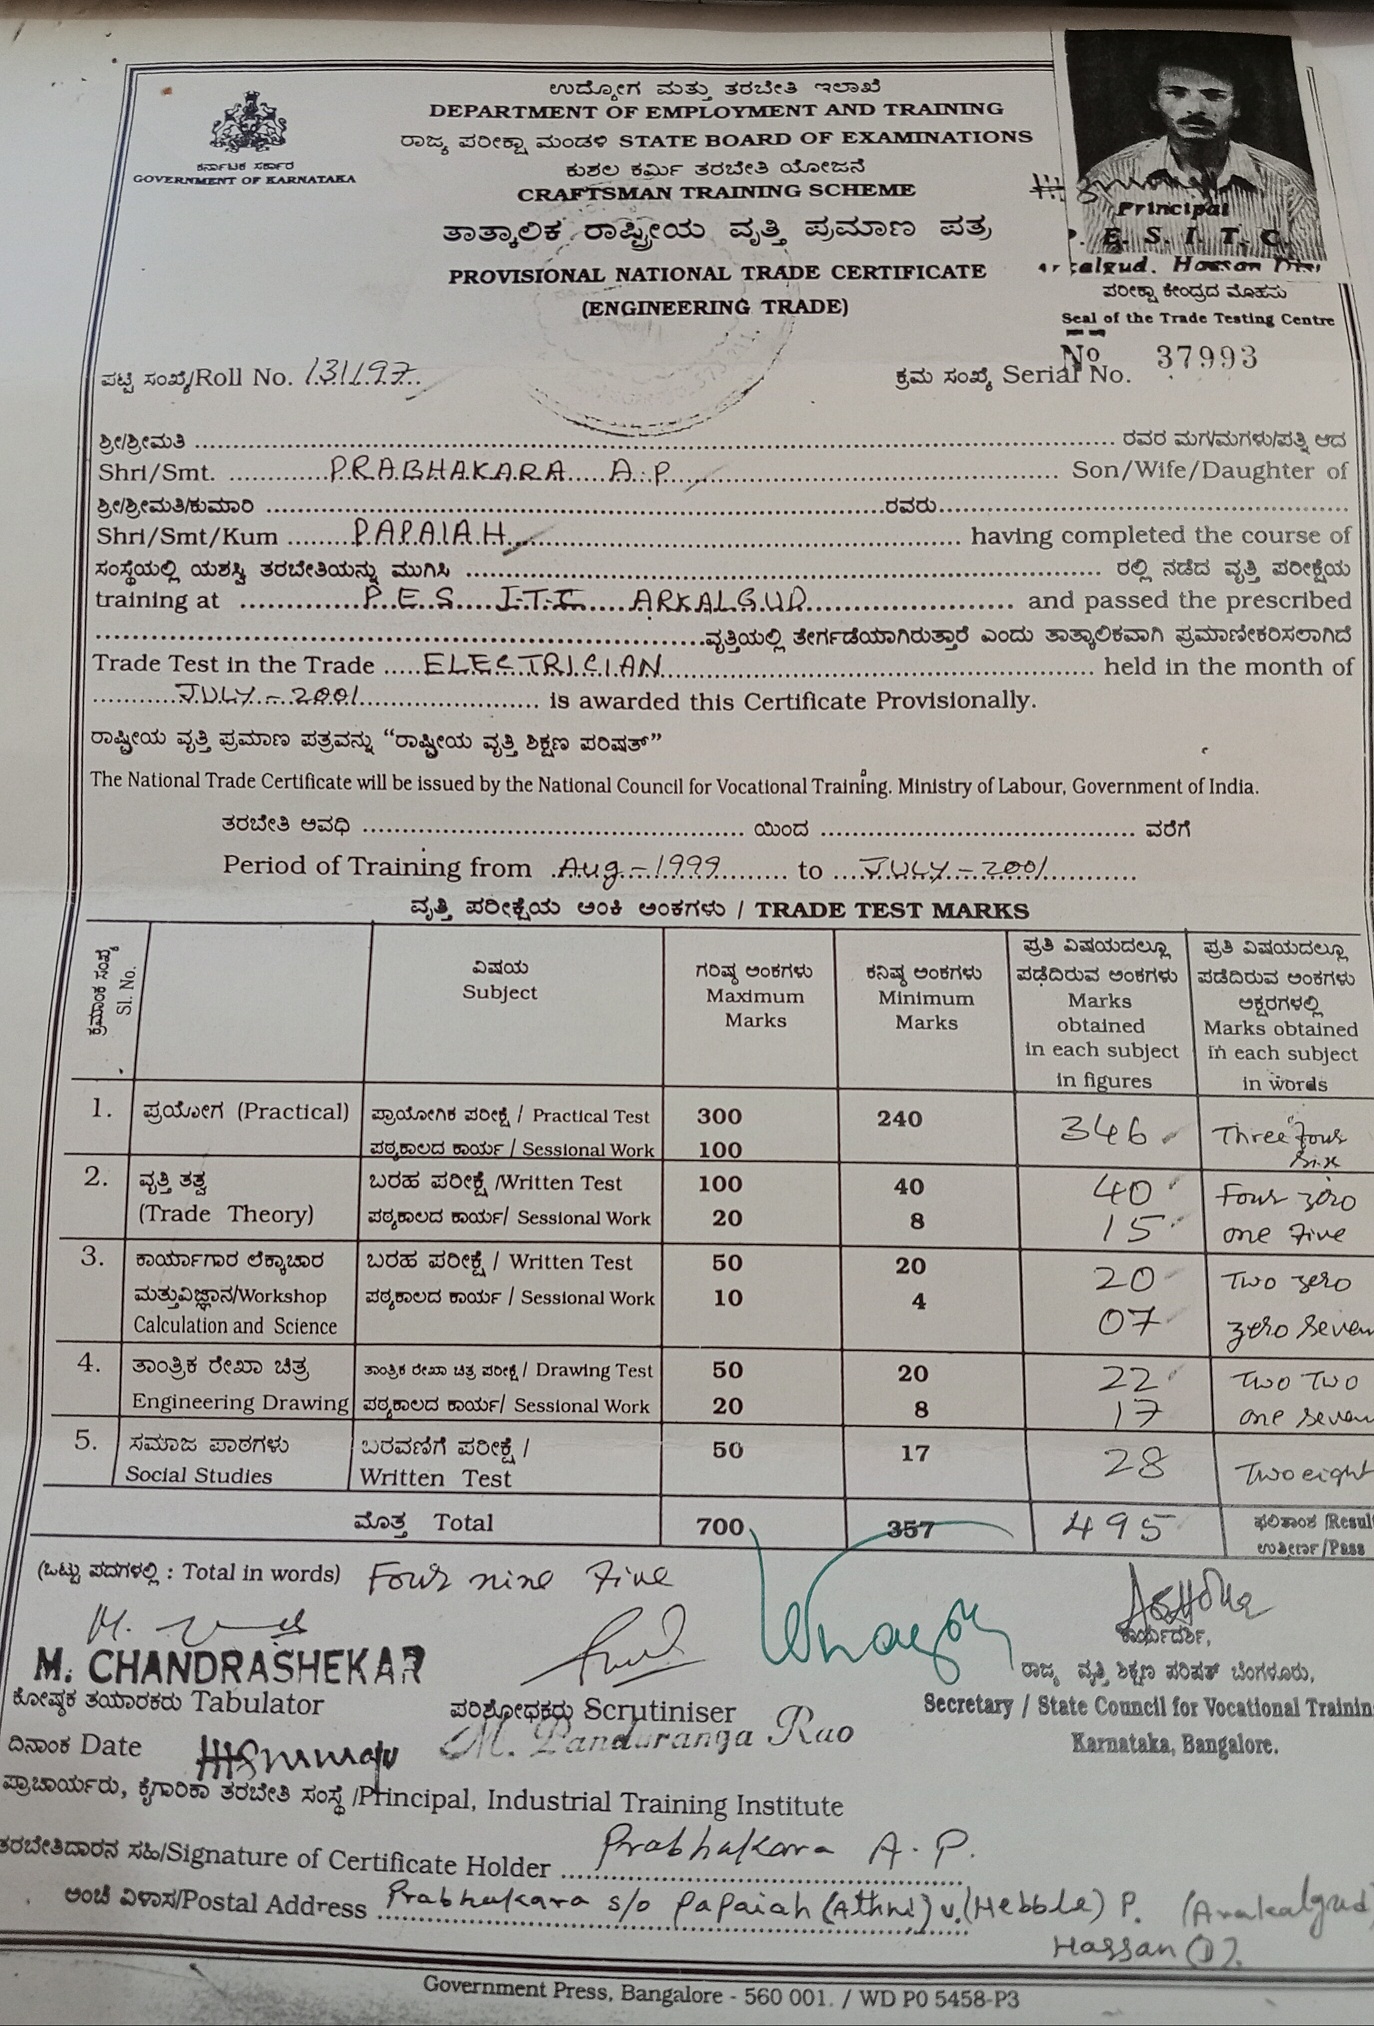 ಉದ್ಯೋಗ ಮತ್ತು ತರಬೇತಿ ಇಲಾಖೆ
DEPARTMENT OF EMPLOYMENT AND TRAINING
ರಾಜ್ಯ ಪರೀಕ್ಷಾ ಮಂಡಳಿ STATE BOARD OF EXAMINATIONS
ಕುಶಲ ಕರ್ಮಿ ತರಬೇತಿ ಯೋಜನೆ
CRAFTSMAN TRAINING SCHEME
ತಾತ್ಕಾಲಿಕ ರಾಷ್ಟ್ರೀಯ ವೃತ್ತಿ ಪ್ರಮಾಣ ಪತ್ರ
PROVISIONAL NATIONAL TRADE CERTIFICATE
(ENGINEERING TRADE)
ಕರ್ನಾಟಕ ಸರ್ಕಾರ
GOVERNMENT OF KARNATAKA
Principal
P. E. S. I. T. C.
Arkalgud. Hassan Dist
ಪರೀಕ್ಷಾ ಕೇಂದ್ರದ ಮೊಹರು
Seal of the Trade Testing Centre
ಪಟ್ಟಿ ಸಂಖ್ಯೆ/Roll No. 131197
ಕ್ರಮ ಸಂಖ್ಯೆ Serial No. No 37993
ಶ್ರೀ/ಶ್ರೀಮತಿ ........ ರವರ ಮಗ/ಮಗಳು/ಪತ್ನಿ ಆದ
Shri/Smt. PRABHAKARA A.P. Son/Wife/Daughter of
ಶ್ರೀ/ಶ್ರೀಮತಿ/ಕುಮಾರಿ ........ ರವರು........
Shri/Smt/Kum PAPAIAH having completed the course of
ಸಂಸ್ಥೆಯಲ್ಲಿ ಯಶಸ್ವಿ ತರಬೇತಿಯನ್ನು ಮುಗಿಸಿ ........ ರಲ್ಲಿ ನಡೆದ ವೃತ್ತಿ ಪರೀಕ್ಷೆಯ
training at P.E.S I.T.I ARKALGUD and passed the prescribed
........ವೃತ್ತಿಯಲ್ಲಿ ತೇರ್ಗಡೆಯಾಗಿರುತ್ತಾರೆ ಎಂದು ತಾತ್ಕಾಲಿಕವಾಗಿ ಪ್ರಮಾಣೀಕರಿಸಲಾಗಿದೆ
Trade Test in the Trade ELECTRICIAN held in the month of
JULY-2001 is awarded this Certificate Provisionally.
ರಾಷ್ಟ್ರೀಯ ವೃತ್ತಿ ಪ್ರಮಾಣ ಪತ್ರವನ್ನು “ರಾಷ್ಟ್ರೀಯ ವೃತ್ತಿ ಶಿಕ್ಷಣ ಪರಿಷತ್”
The National Trade Certificate will be issued by the National Council for Vocational Training. Ministry of Labour, Government of India.
ತರಬೇತಿ ಅವಧಿ ........ ಯಿಂದ ........ ವರೆಗೆ
Period of Training from Aug-1999 to JULY-2001
ವೃತ್ತಿ ಪರೀಕ್ಷೆಯ ಅಂಕಿ ಅಂಕಗಳು / TRADE TEST MARKS
ಕ್ರಮಾಂಕ ಸಂಖ್ಯೆ Sl. No.
ವಿಷಯ Subject
ಗರಿಷ್ಠ ಅಂಕಗಳು Maximum Marks
ಕನಿಷ್ಠ ಅಂಕಗಳು Minimum Marks
ಪ್ರತಿ ವಿಷಯದಲ್ಲೂ ಪಡೆದಿರುವ ಅಂಕಗಳು Marks obtained in each subject in figures
ಪ್ರತಿ ವಿಷಯದಲ್ಲೂ ಪಡೆದಿರುವ ಅಂಕಗಳು ಅಕ್ಷರಗಳಲ್ಲಿ Marks obtained in each subject in words
1. ಪ್ರಯೋಗ (Practical) ಪ್ರಾಯೋಗಿಕ ಪರೀಕ್ಷೆ / Practical Test 300 240 346 Three four six
ಪಠ್ಯಕಾಲದ ಕಾರ್ಯ / Sessional Work 100
2. ವೃತ್ತಿ ತತ್ವ ಬರಹ ಪರೀಕ್ಷೆ /Written Test 100 40 40 Four zero
(Trade Theory) ಪಠ್ಯಕಾಲದ ಕಾರ್ಯ/ Sessional Work 20 8 15 one Five
3. ಕಾರ್ಯಾಗಾರ ಲೆಕ್ಕಾಚಾರ ಬರಹ ಪರೀಕ್ಷೆ / Written Test 50 20 20 Two zero
ಮತ್ತುವಿಜ್ಞಾನ/Workshop ಪಠ್ಯಕಾಲದ ಕಾರ್ಯ / Sessional Work 10 4 07 zero seven
Calculation and Science
4. ತಾಂತ್ರಿಕ ರೇಖಾ ಚಿತ್ರ ತಾಂತ್ರಿಕ ರೇಖಾ ಚಿತ್ರ ಪರೀಕ್ಷೆ / Drawing Test 50 20 22 Two Two
Engineering Drawing ಪಠ್ಯಕಾಲದ ಕಾರ್ಯ/ Sessional Work 20 8 17 one seven
5. ಸಮಾಜ ಪಾಠಗಳು ಬರವಣಿಗೆ ಪರೀಕ್ಷೆ / 50 17 28 Two eight
Social Studies Written Test
ಮೊತ್ತ Total 700 357 495 ಫಲಿತಾಂಶ /Result
ಉತ್ತೀರ್ಣ /Pass
(ಒಟ್ಟು ಪದಗಳಲ್ಲಿ : Total in words) Four nine Five
M. CHANDRASHEKAR
ಕೋಷ್ಠಕ ತಯಾರಕರು Tabulator
ಪರಿಶೋಧಕರು Scrutiniser
M. Panduranga Rao
ಕಾರ್ಯದರ್ಶಿ,
ರಾಜ್ಯ ವೃತ್ತಿ ಶಿಕ್ಷಣ ಪರಿಷತ್ ಬೆಂಗಳೂರು,
Secretary / State Council for Vocational Trainin
Karnataka, Bangalore.
ದಿನಾಂಕ Date
ಪ್ರಾಚಾರ್ಯರು, ಕೈಗಾರಿಕಾ ತರಬೇತಿ ಸಂಸ್ಥೆ /Principal, Industrial Training Institute
ತರಬೇತಿದಾರನ ಸಹಿ/Signature of Certificate Holder Prabhakara A.P.
ಅಂಚೆ ವಿಳಾಸ/Postal Address Prabhakara s/o Papaiah (Athni) v. (Hebble) P. (Arakalgud)
Hassan (D).
Government Press, Bangalore - 560 001. / WD P0 5458-P3